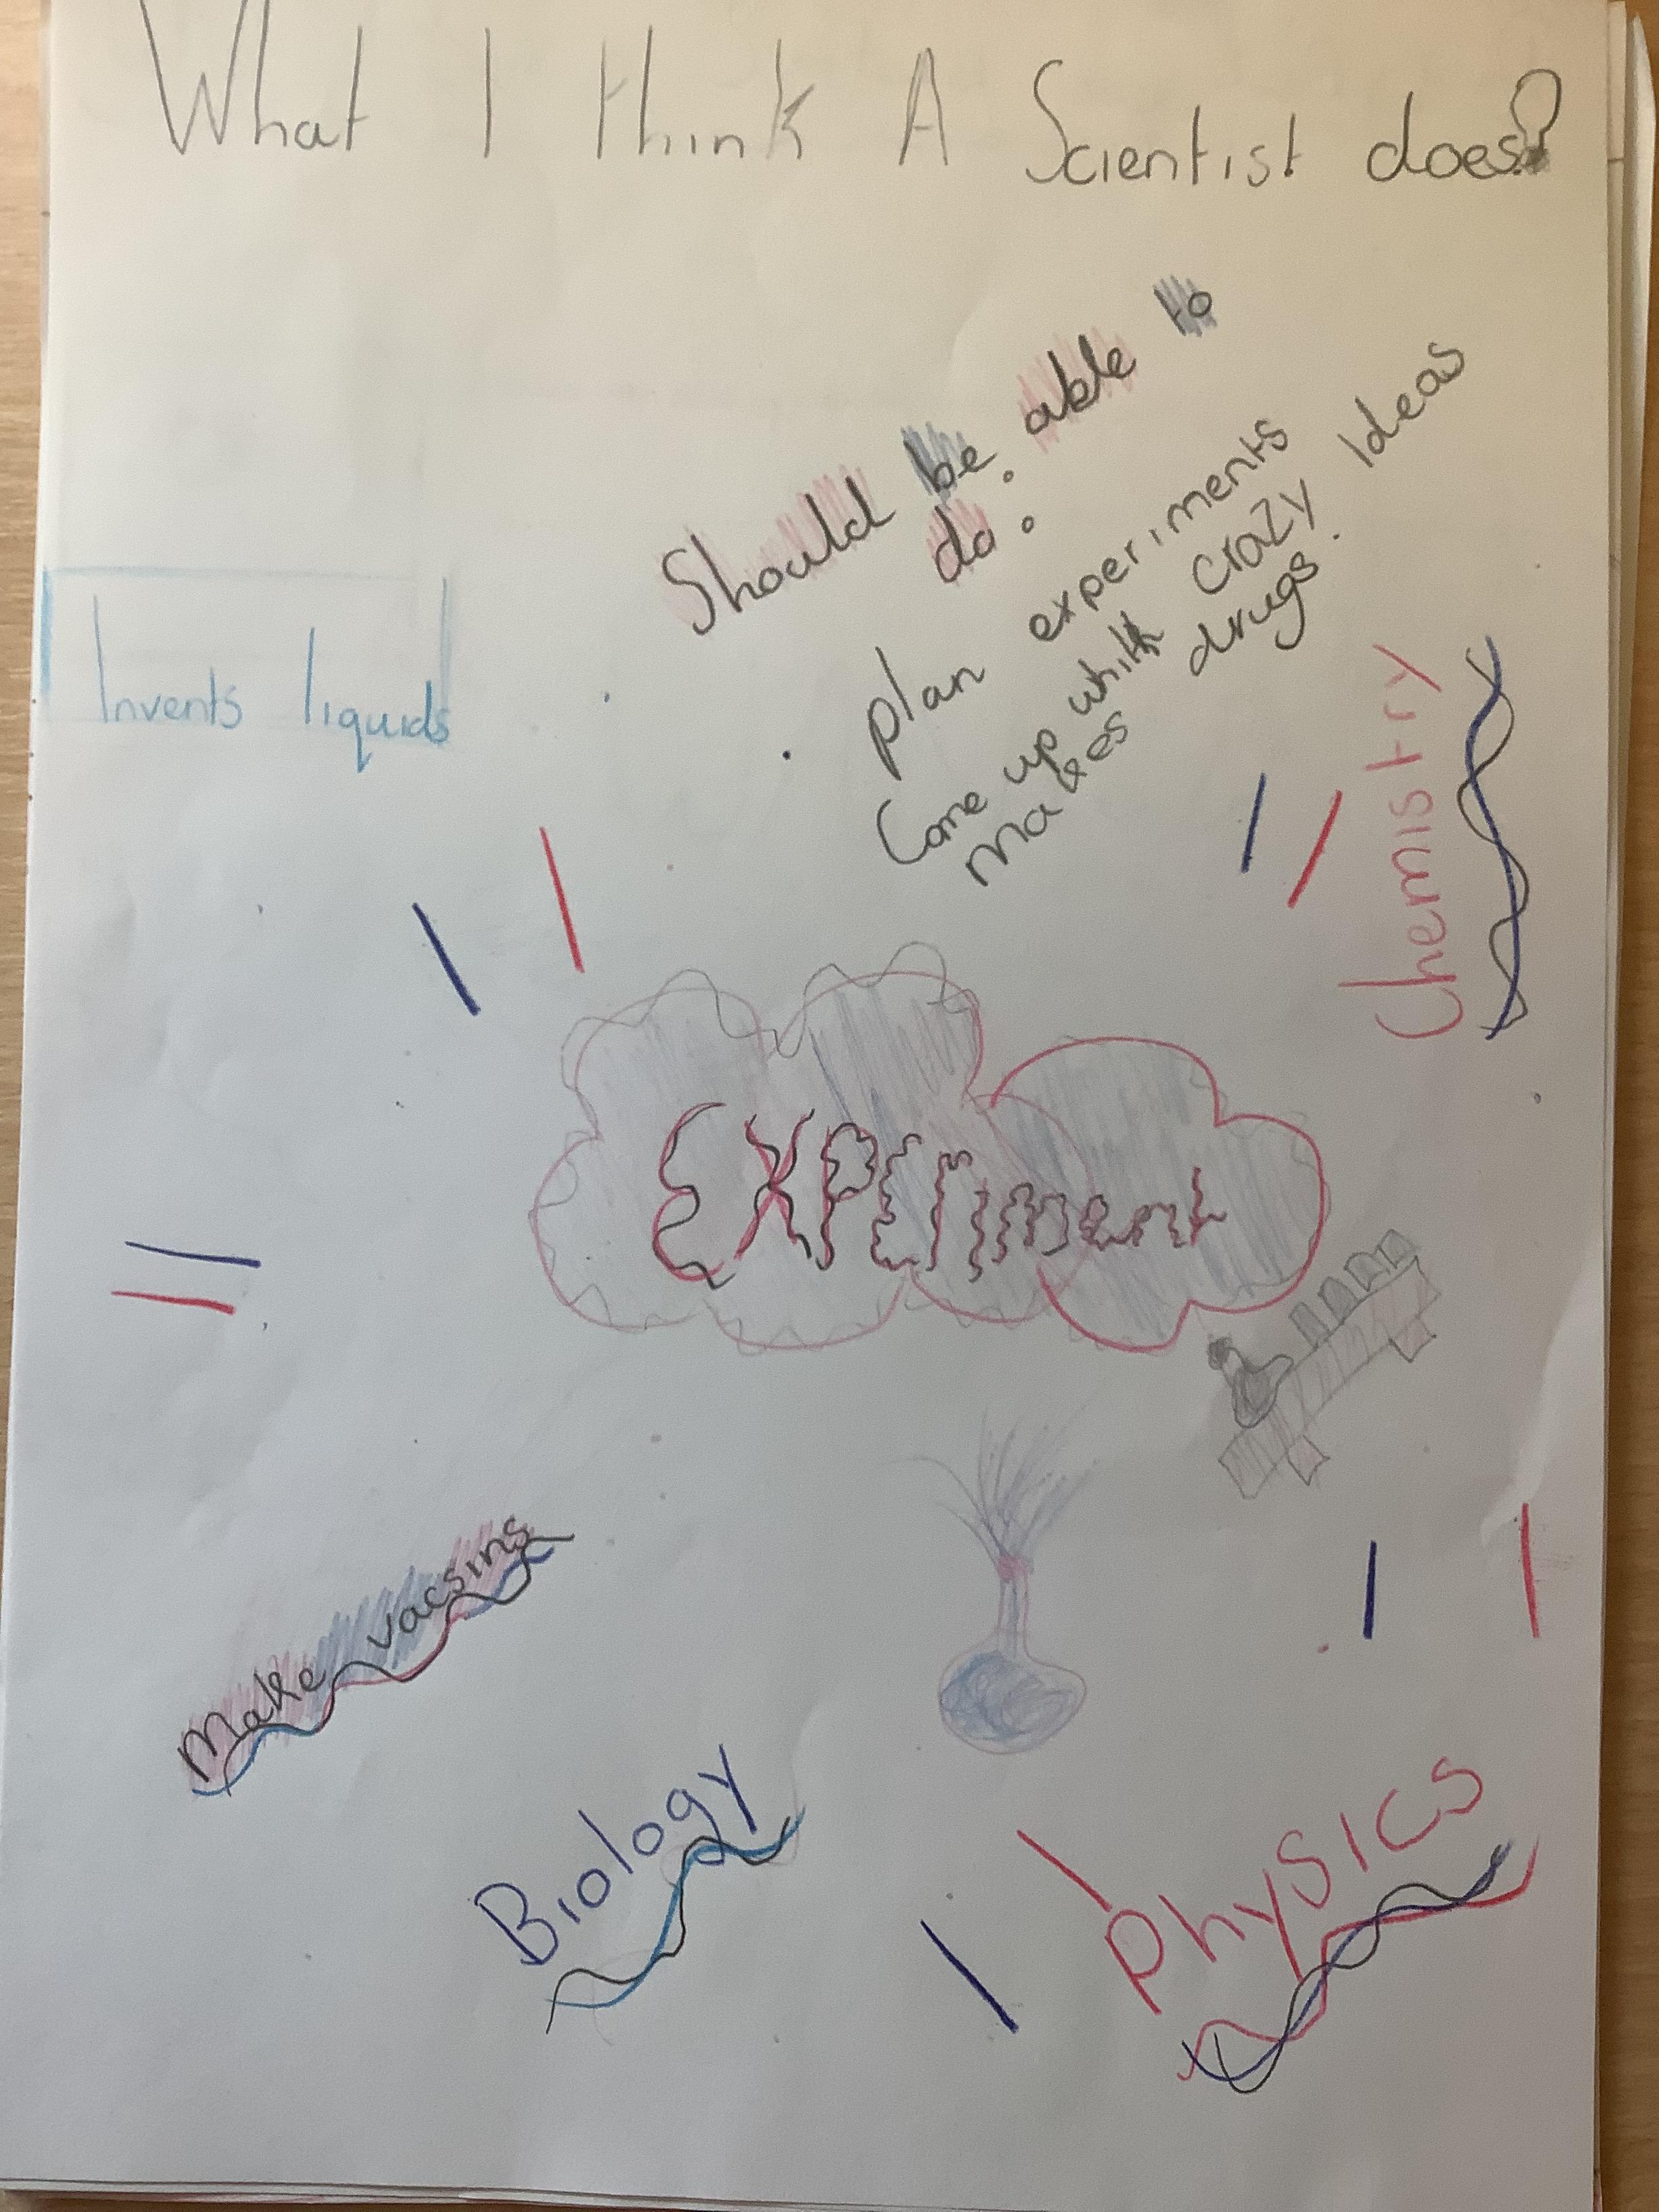 What I think A Scientist does?
Should be able to
do:
plan experiments
Come up whith crazy Ideas
makes drugs.
Invents liquids
Chemistry
Experiment
Make vacsins
Biology
Physics